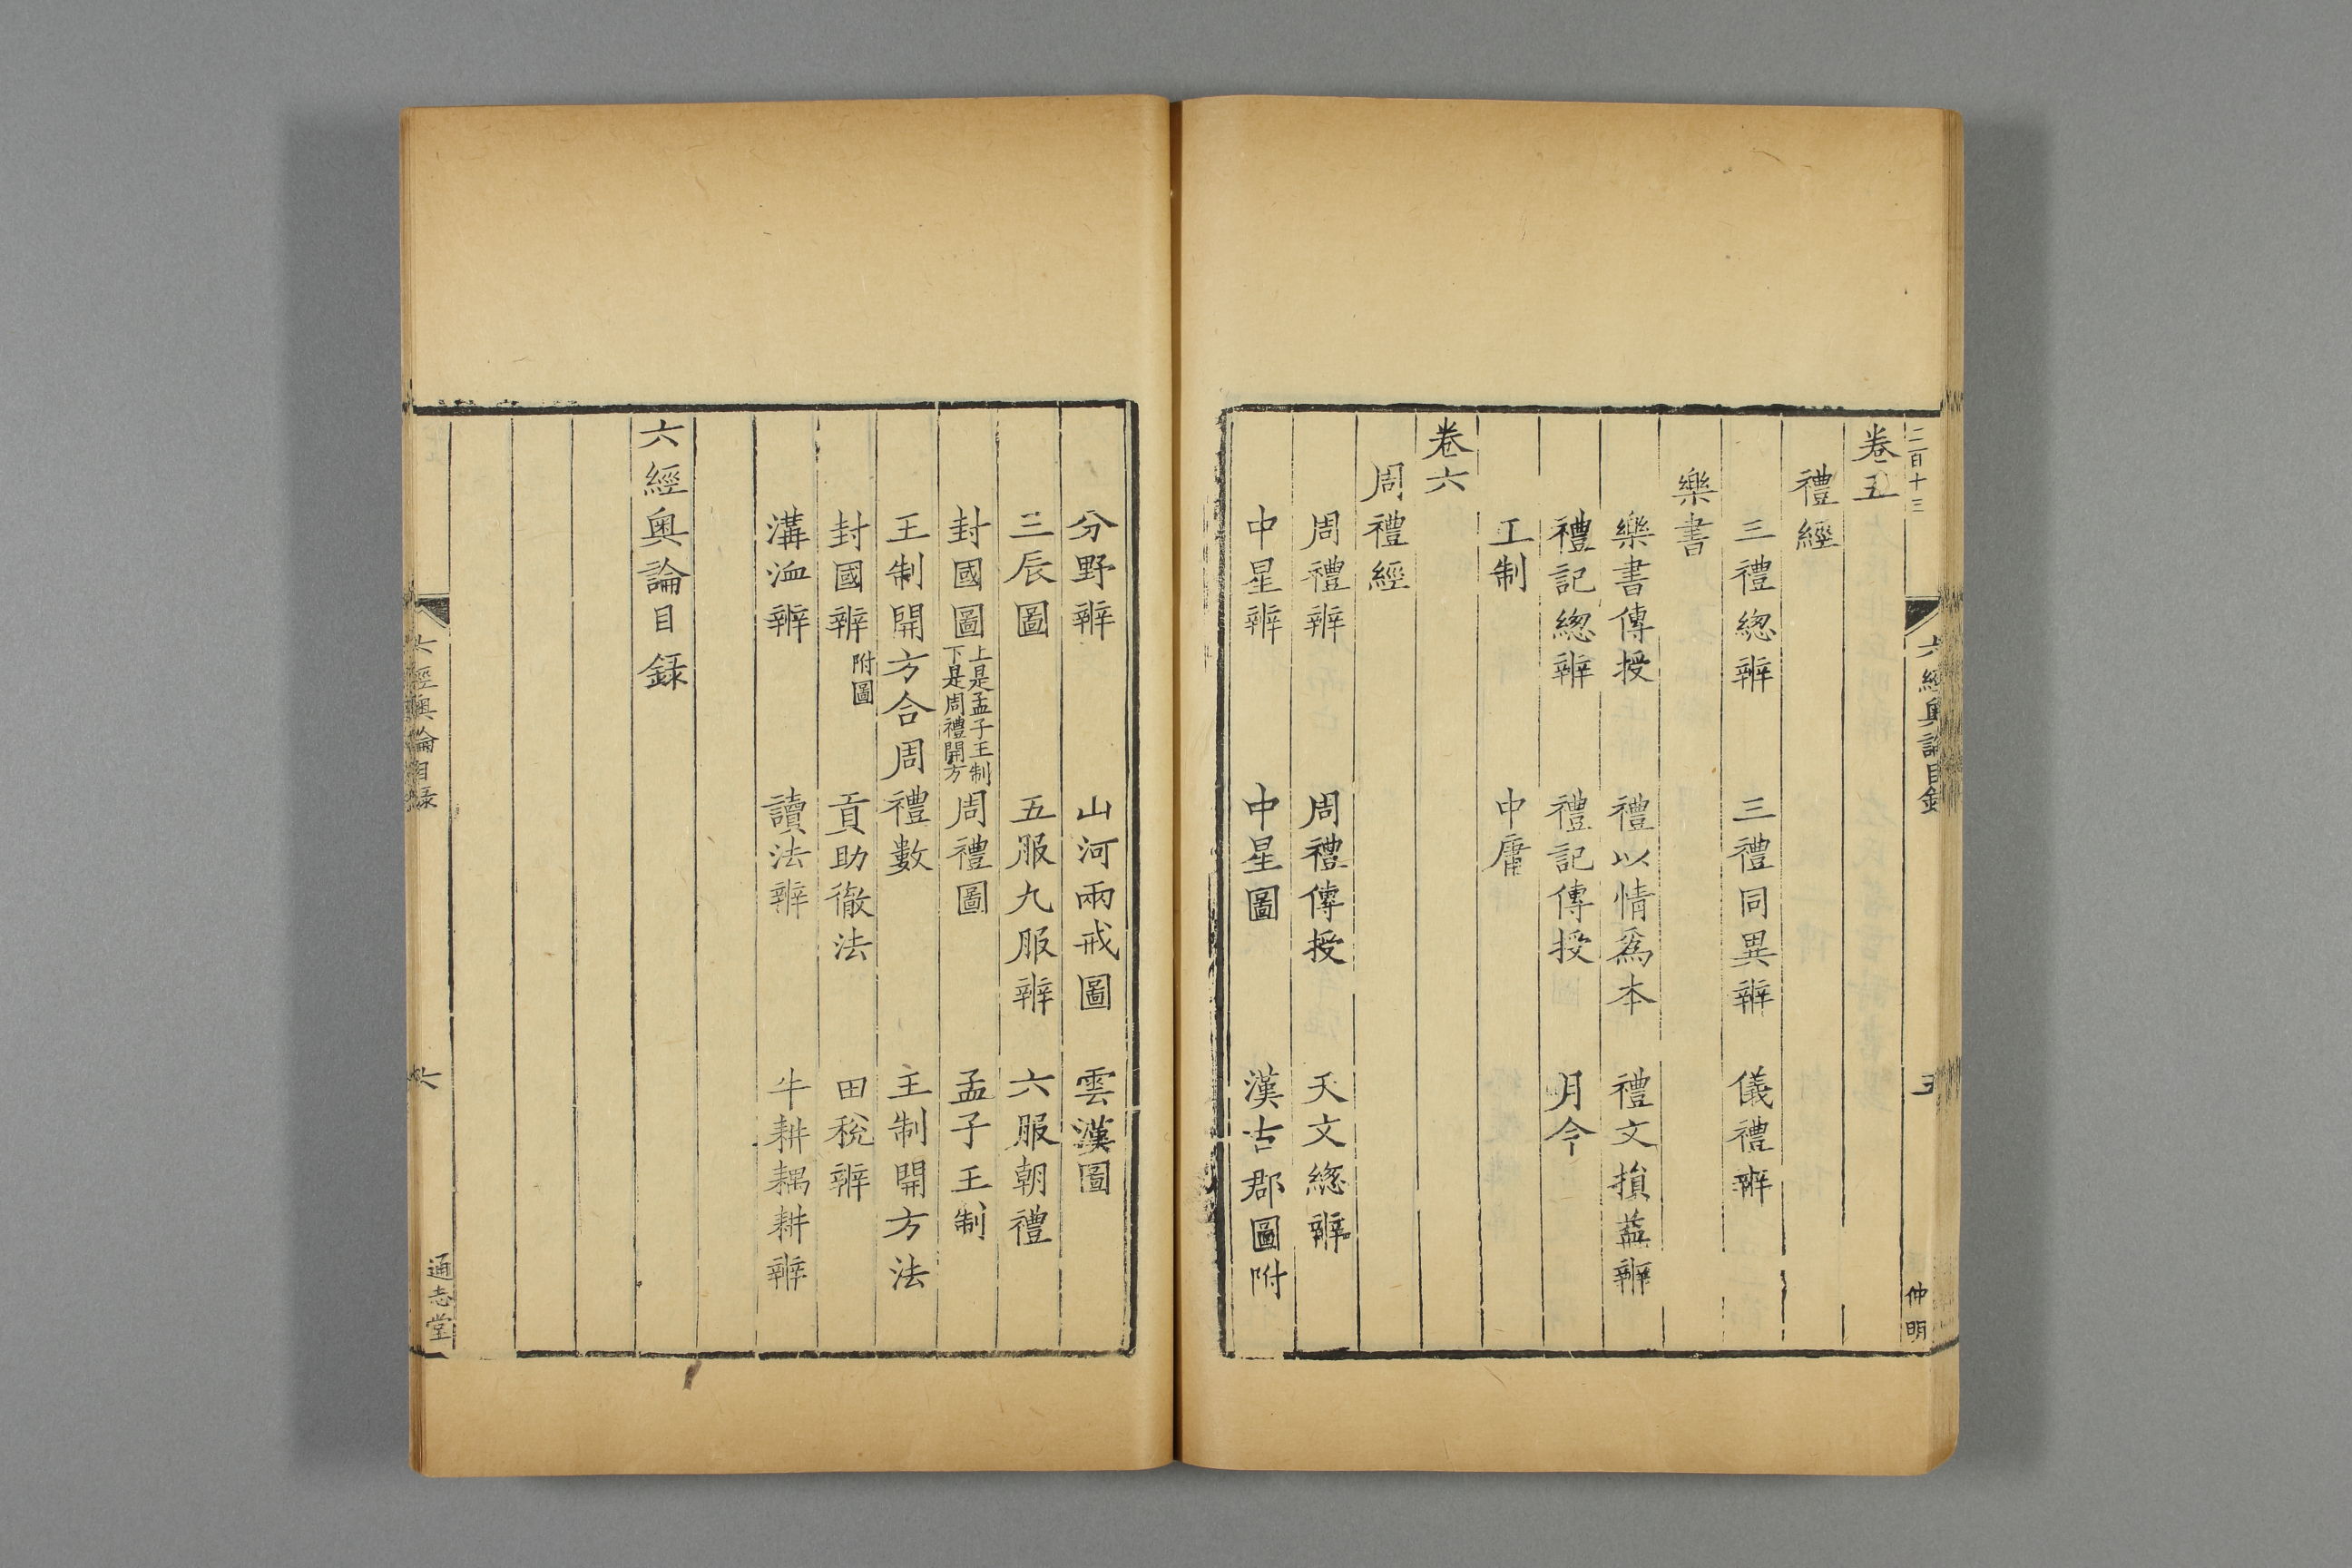 二百十三 六經奧論目錄 五 仲明
卷五
禮經
三禮緫辨 三禮同異辨 儀禮辨
樂書
樂書傳授 禮以情爲本 禮文損益辨
禮記緫辨 禮記傳授 月令
王制 中庸
卷六
周禮經
周禮辨 周禮傳授 天文緫辨
中星辨 中星圖 漢古郡圖附
分野辨 山河兩戒圖 雲漢圖
三辰圖 五服九服辨 六服朝禮
封國圖 上是孟子王制 下是周禮開方 周禮圖 孟子王制
王制開方合周禮數 王制開方法
封國辨 附圖 貢助徹法 田稅辨
溝洫辨 讀法辨 牛耕耦耕辨
六經奧論目録
六經奧論目録 六 通志堂